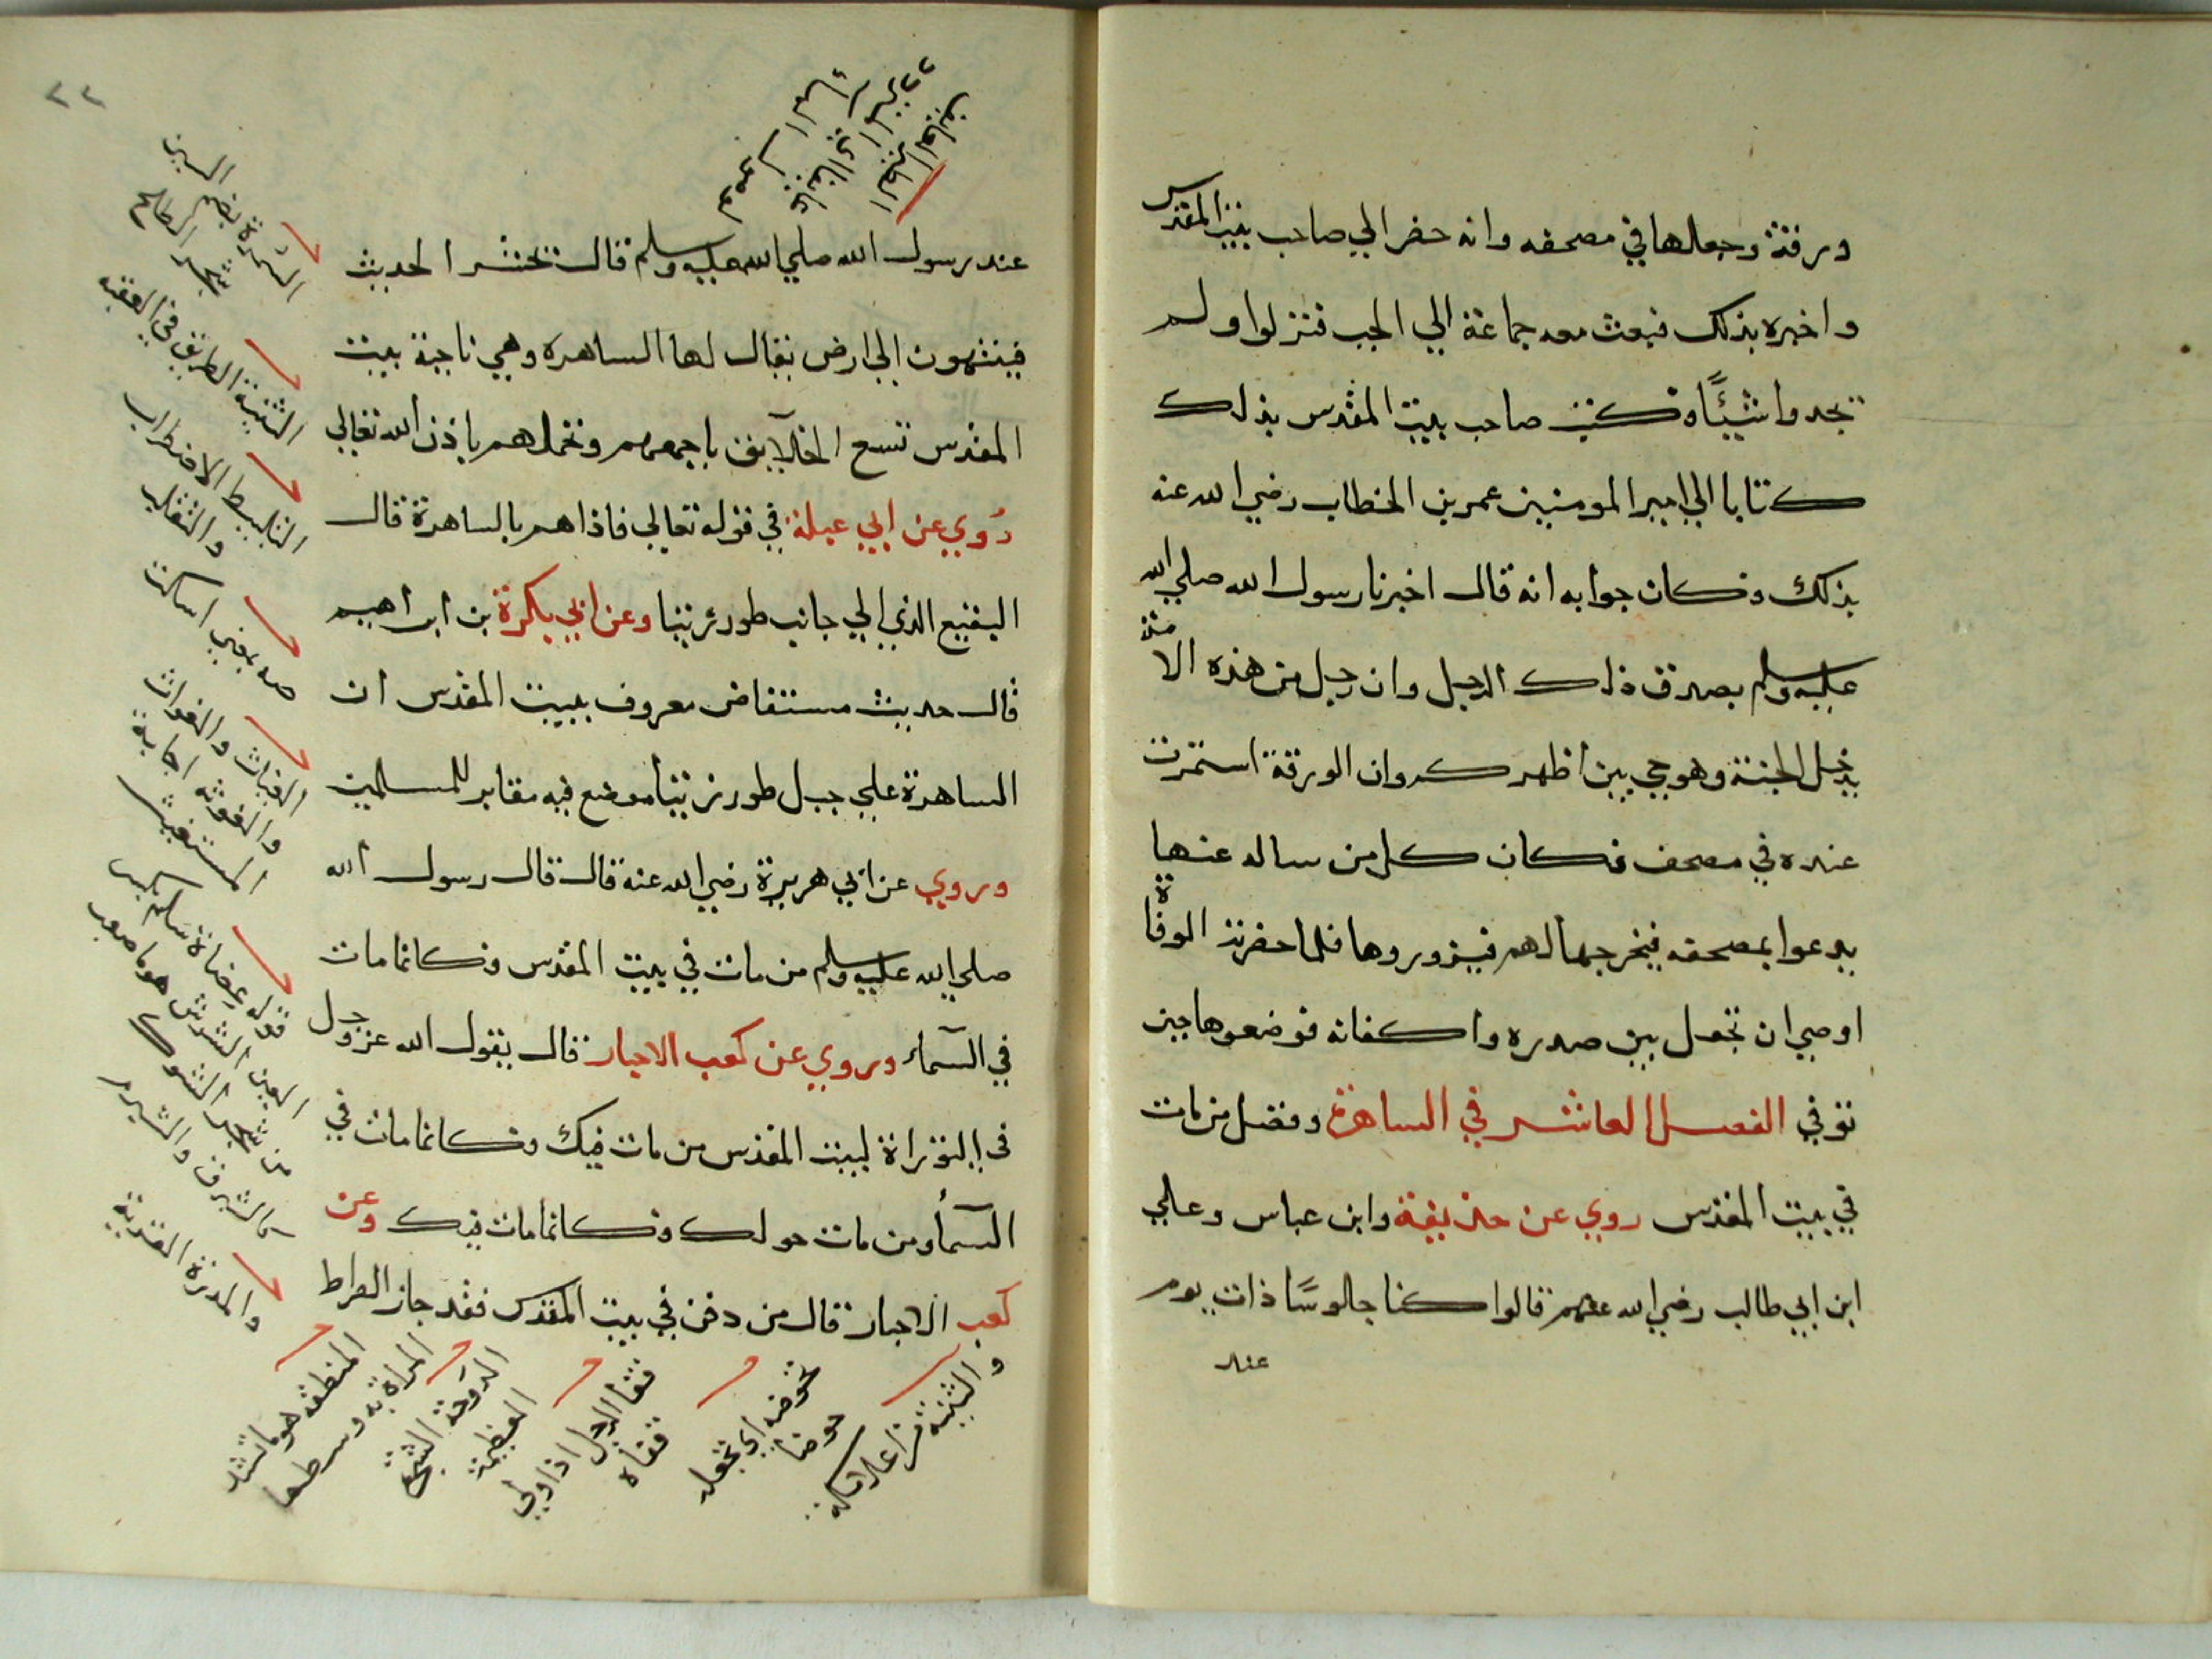 ورقة وجعلها في مصحفه وانه حضر الي صاحب بيت المقدس
واخبره بذلك فبعث معه جماعة الي الجب فنزلوا ولم
يجدوا شيئًا وكتب صاحب بيت المقدس بذلك
كتابا الي امير المومنين عمر بن الخطاب رضي الله عنه
بذلك وكان جوابه انه قال اخبرنا رسول الله صلي الله
عليه وسلم بصدق ذلك الرجل وان رجل من هذه الامة
يدخل الجنة وهو حي بين أظهركم وان الورقة استمرت
عنده في مصحف فكان كل من ساله عنها
يدعوا بمصحفه فيخرجها لهم فيزوروها فلما حضرته الوفاة
اوصي ان تجعل بين صدره واكفانه فوضعوها حين
توفي الفصل العاشر في الساهرة وفضل من مات
في بيت المقدس روي عن حذيفة وابن عباس وعلي
ابن ابي طالب رضي الله عنهم قالوا كنا جالوسًا ذات يوم
عند
٢٢
عند رسول الله صلي الله عليه وسلم فقال تحشر الحديث
فينتهون الي ارض يقال لها الساهره وهي ناحية بيت
المقدس تسع الخلآيق باجمعهم وتحملهم باذن الله تعالي
رُوي عن ابي عبلة في قوله تعالي فاذا هم بالساهرة قال
البقيع الذي الي جانب طور زيتا وعن ابي بكرة بن ابراهيم
قال حديث مستفاض معروف ببيت المقدس ان
الساهرة علي جبل طور زيتا موضع فيه مقابر للمسلمين
وروي عن ابي هريرة رضي الله عنه قال قال رسول الله
صلي الله عليه وسلم من مات في بيت المقدس فكانما مات
في السمآء وروي عن كعب الاحبار قال يقول الله عز وجل
في التوراة لبيت المقدس من مات فيك فكانما مات في
السمآء ومن مات حولك فكانما مات فيك وعن
كعب الاحبار قال من دفن في بيت المقدس فقد جاز الصراط
السمرة بضم السين
شجر الطلح
الثنية الطريق في العقبه
التلبط الاضطراب
والتقلب
صه بمعني اسكت
الغياث والغواث
والغوثه اجابة
المستغيث
قوله عضاة سلم بكسر
العين الشرش هو ما صعب
من شجر الشوك
كالشبرق والشبرم
والمدرة القرية
المنطقه هو ما تشد
المراة به وسطها
الدوحة الشجرة
العظيمة
قفا الرجل اذا ولي
قفاه
تحوضه اي تجعله
حوضا